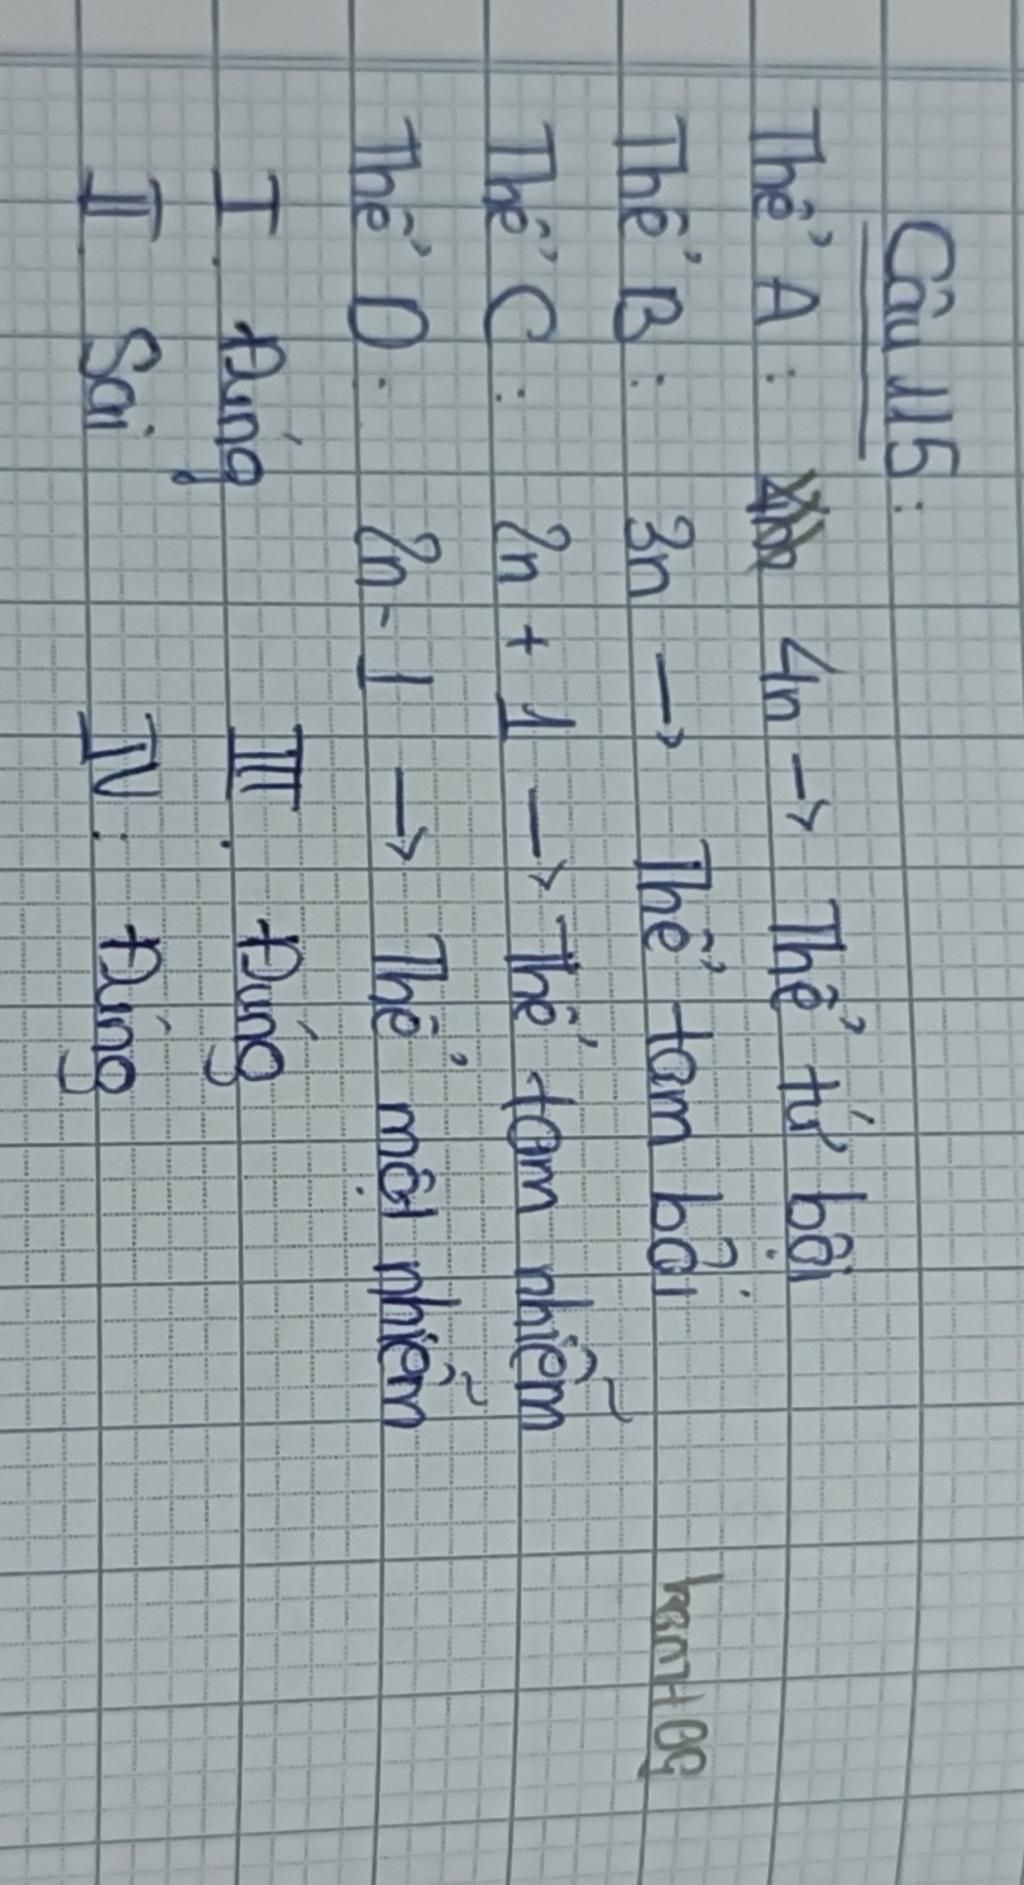 Câu 115:
Thể A: 4n → Thể tứ bội
Thể B: 3n → Thể tam bội
Thể C: 2n + 1 → Thể tam nhiễm
Thể D: 2n - 1 → Thể một nhiễm
I. Đúng III. Đúng
II. Sai IV: Đúng